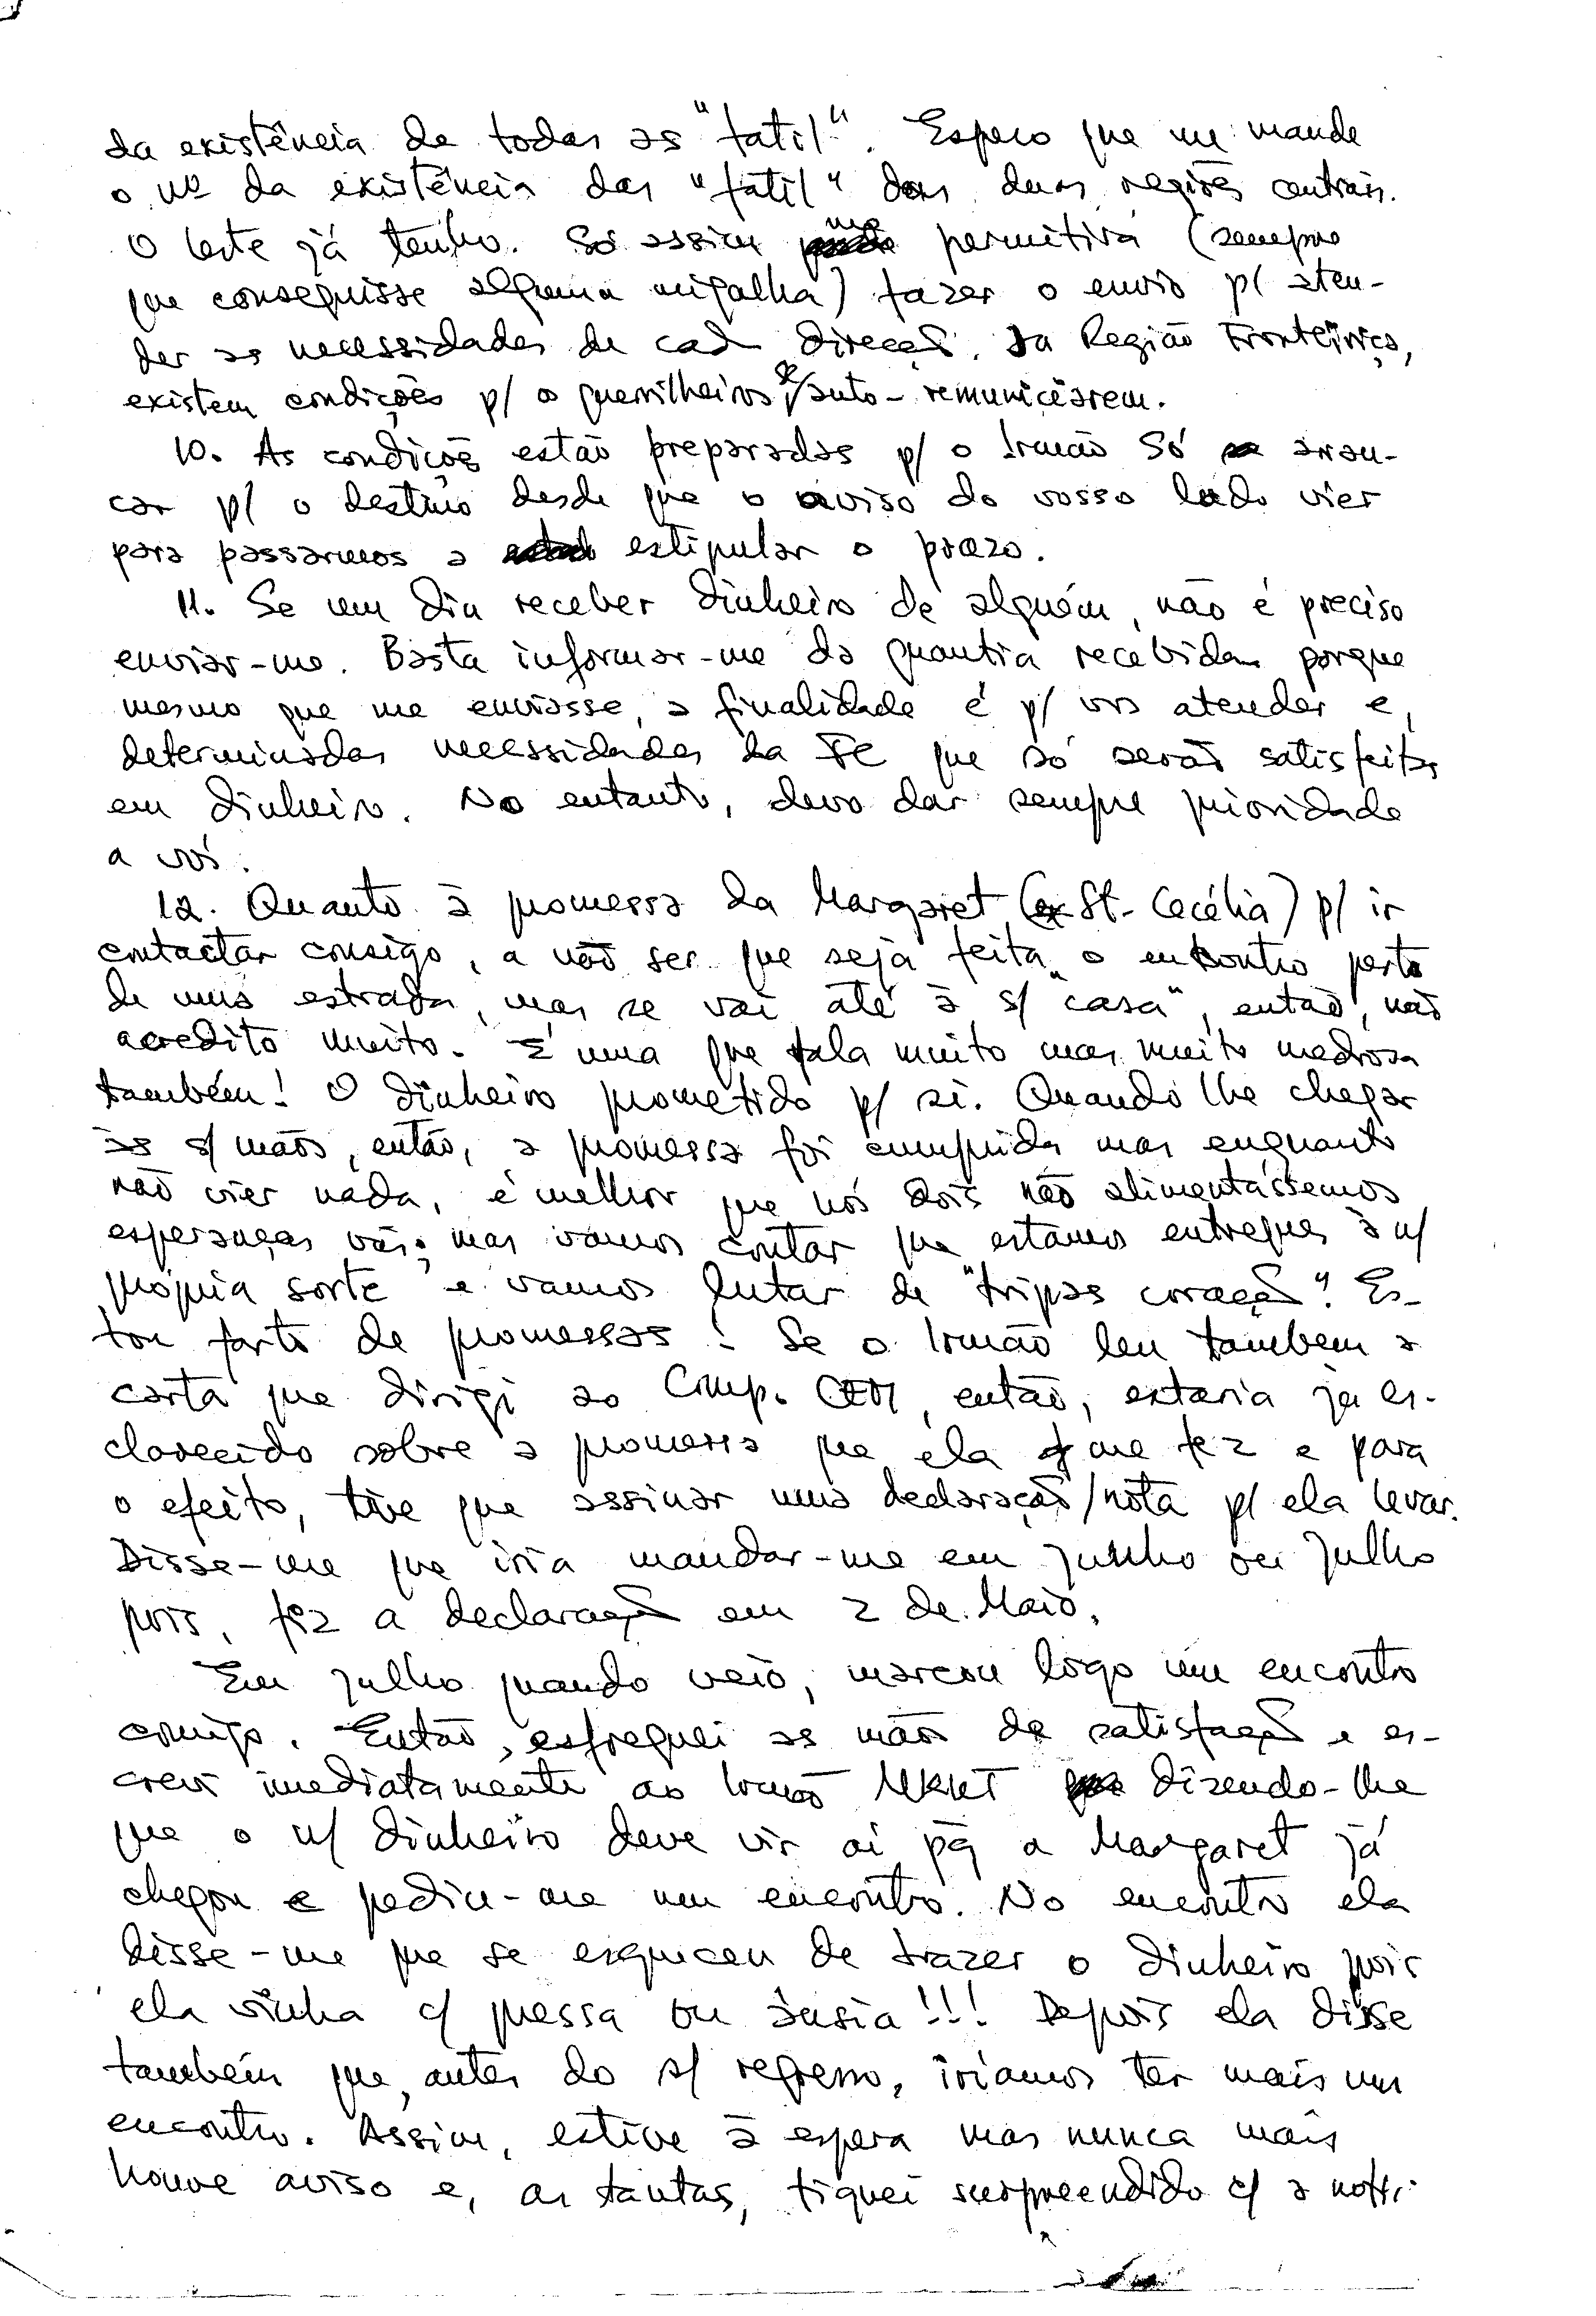 da existência de todas as "fatil". Espero que me mande
o nº da existência das "fatil" das duas regiões centrais.
O leste já tenho. Só assim me permitirá (sempre
que conseguisse alguma migalha) fazer o envio p/ aten-
der as necessidades de cada direcção. Na Região Fronteiriça,
existem condições p/ os guerrilheiros se auto-remuniciarem.
10. As condições estão preparadas p/ o Irmão Só arran-
car p/ o destino desde que o aviso do vosso lado vier
para passarmos a estipular o prazo.
11. Se um dia receber dinheiro de alguém, não é preciso
enviar-me. Basta informar-me da quantia recebida porque
mesmo que me enviasse, a finalidade é p/ vos atender e,
determinadas necessidades da FC que só serão satisfeitas
em dinheiro. No entanto, devo dar sempre prioridade
a vós.
12. Quanto à promessa da Margaret (ex St. Cecélia) p/ ir
contactar consigo, a não ser que seja feita o encontro perto
de uma estrada, mas se vai até à s/ "casa", então, não
acredito muito. É uma que fala muito mas muito medrosa
também! O dinheiro prometido p/ si. Quando lhe chegar
às s/ mãos, então, a promessa foi cumprida mas enquanto
não vier nada, é melhor que nós dois não alimentássemos
esperanças vãs; mas vamos contar que estamos entregues à n/
própria sorte e vamos lutar de "tripas coração". Es-
tou farto de promessas! Se o Irmão leu também a
carta que dirigi ao Comp. CEM, então, estaria já es-
clarecido sobre a promessa que ela me fez e para
o efeito, tive que assinar uma declaração/nota p/ ela levar.
Disse-me que iria mandar-me em Junho ou Julho
pois, fez a declaração em 2 de Maio.
Em Julho quando veio, marcou logo um encontro
comigo. Então, esfreguei as mãos de satisfação e es-
crevi imediatamente ao Irmão MKHT dizendo-lhe
que o n/ dinheiro deve vir aí pq a Margaret já
chegou e pediu-me um encontro. No encontro ela
disse-me que se esqueceu de trazer o dinheiro pois
ela vinha c/ pressa ou ânsia!!! Depois ela disse
também que, antes do s/ regresso, iríamos ter mais um
encontro. Assim, estive à espera mas nunca mais
houve aviso e, as tantas, fiquei surpreendido c/ a notí-